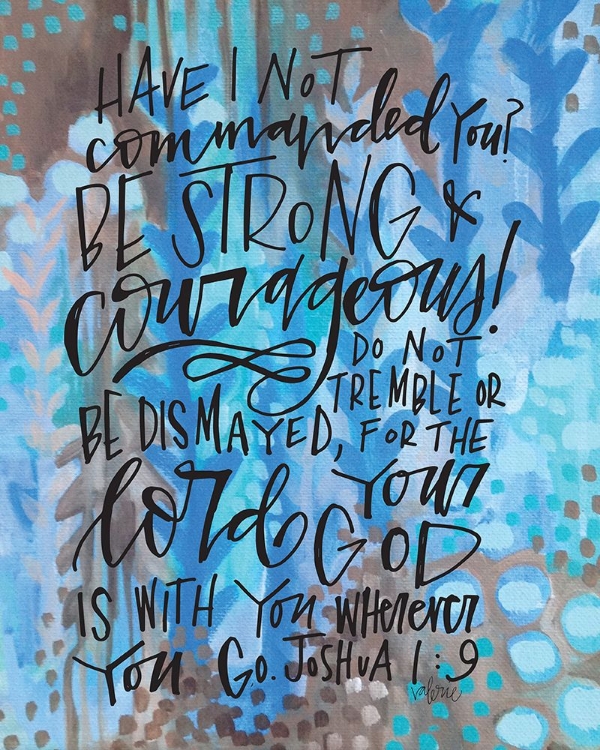 HAVE I NOT
commanded You?
BE STRONG &
courageous!
DO NOT
TREMBLE OR
BE DISMAYED, FOR THE
lord Your
GOD
IS WITH You WHerever
You Go. JOSHUA 1:9
valerie